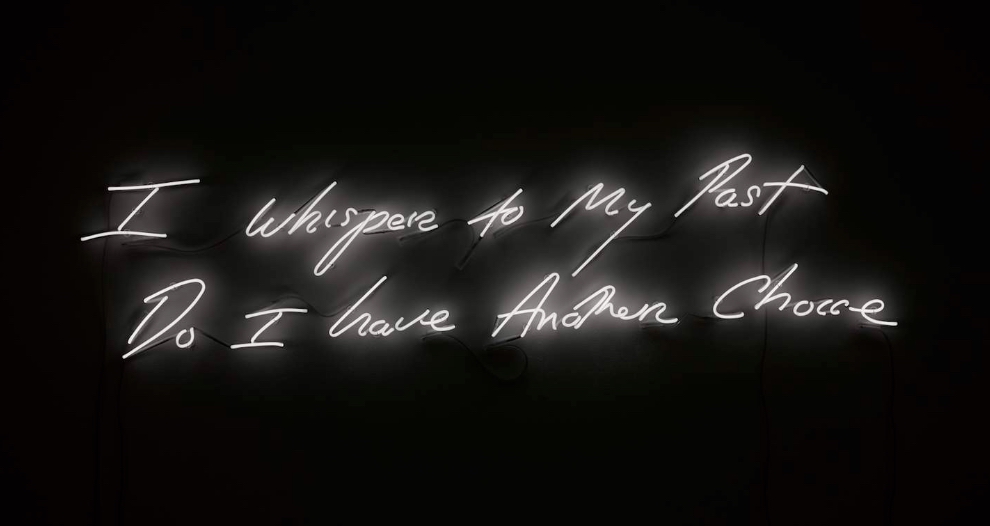 I whisper to My Past
Do I have Another Choice